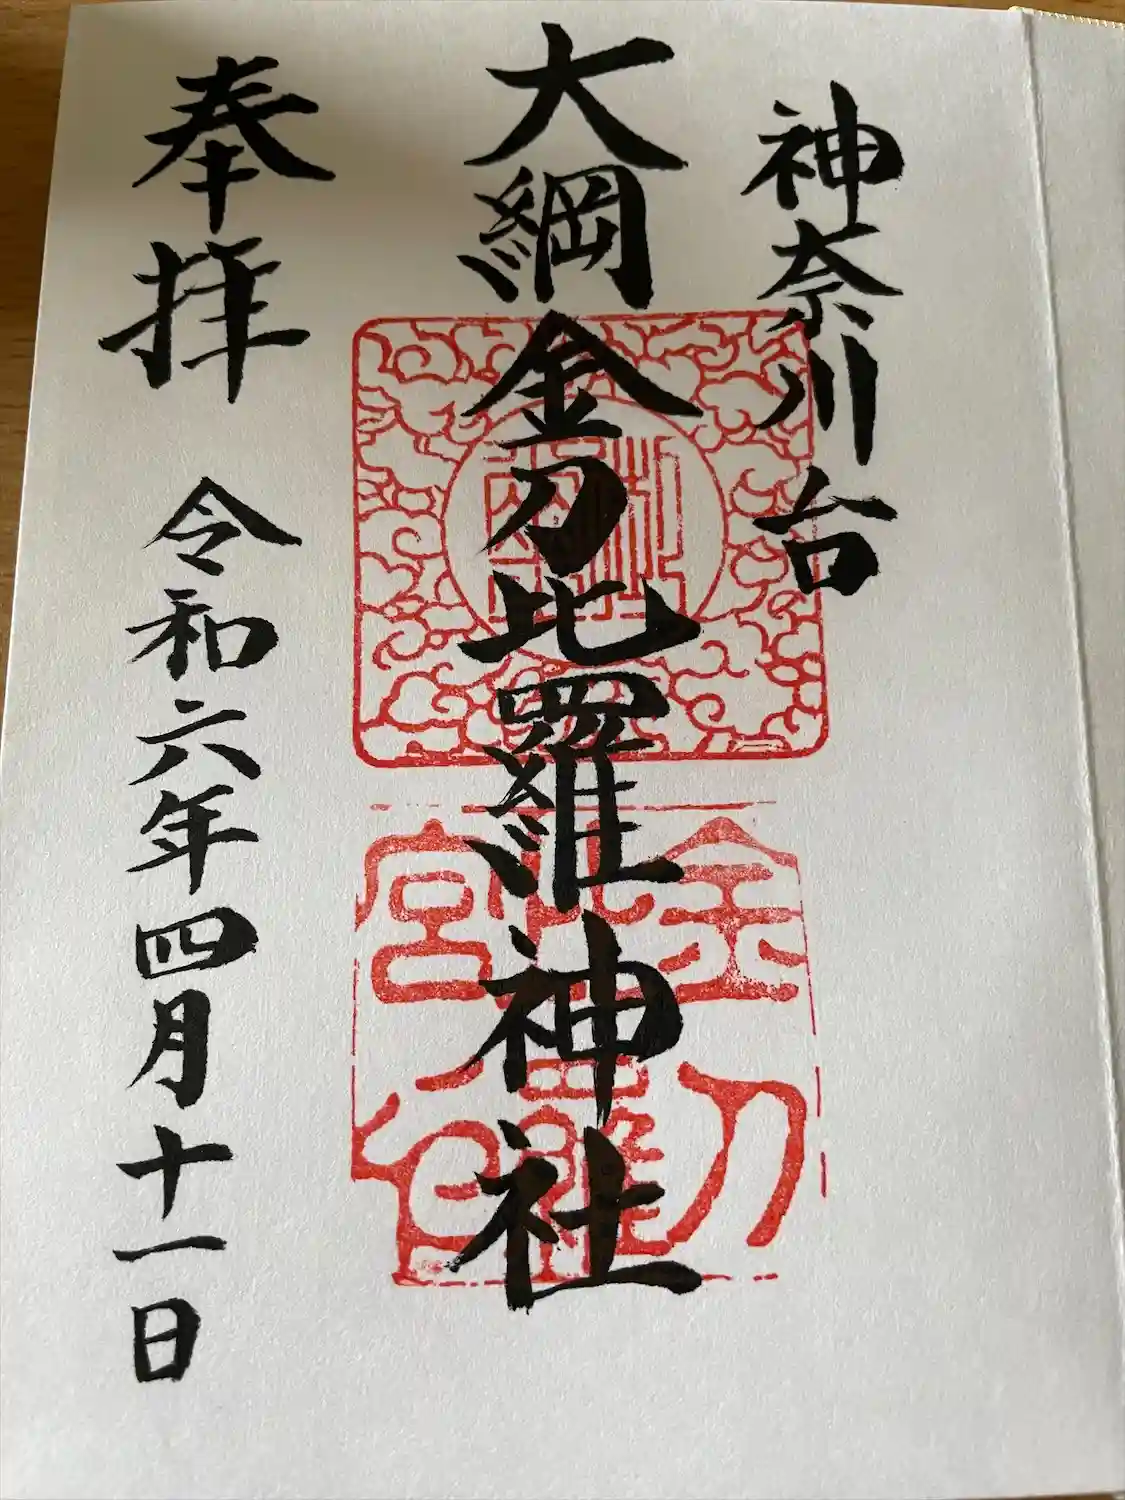 神奈川台
大綱金刀比羅神社
奉拝 令和六年四月十一日
金刀
比羅
宮印